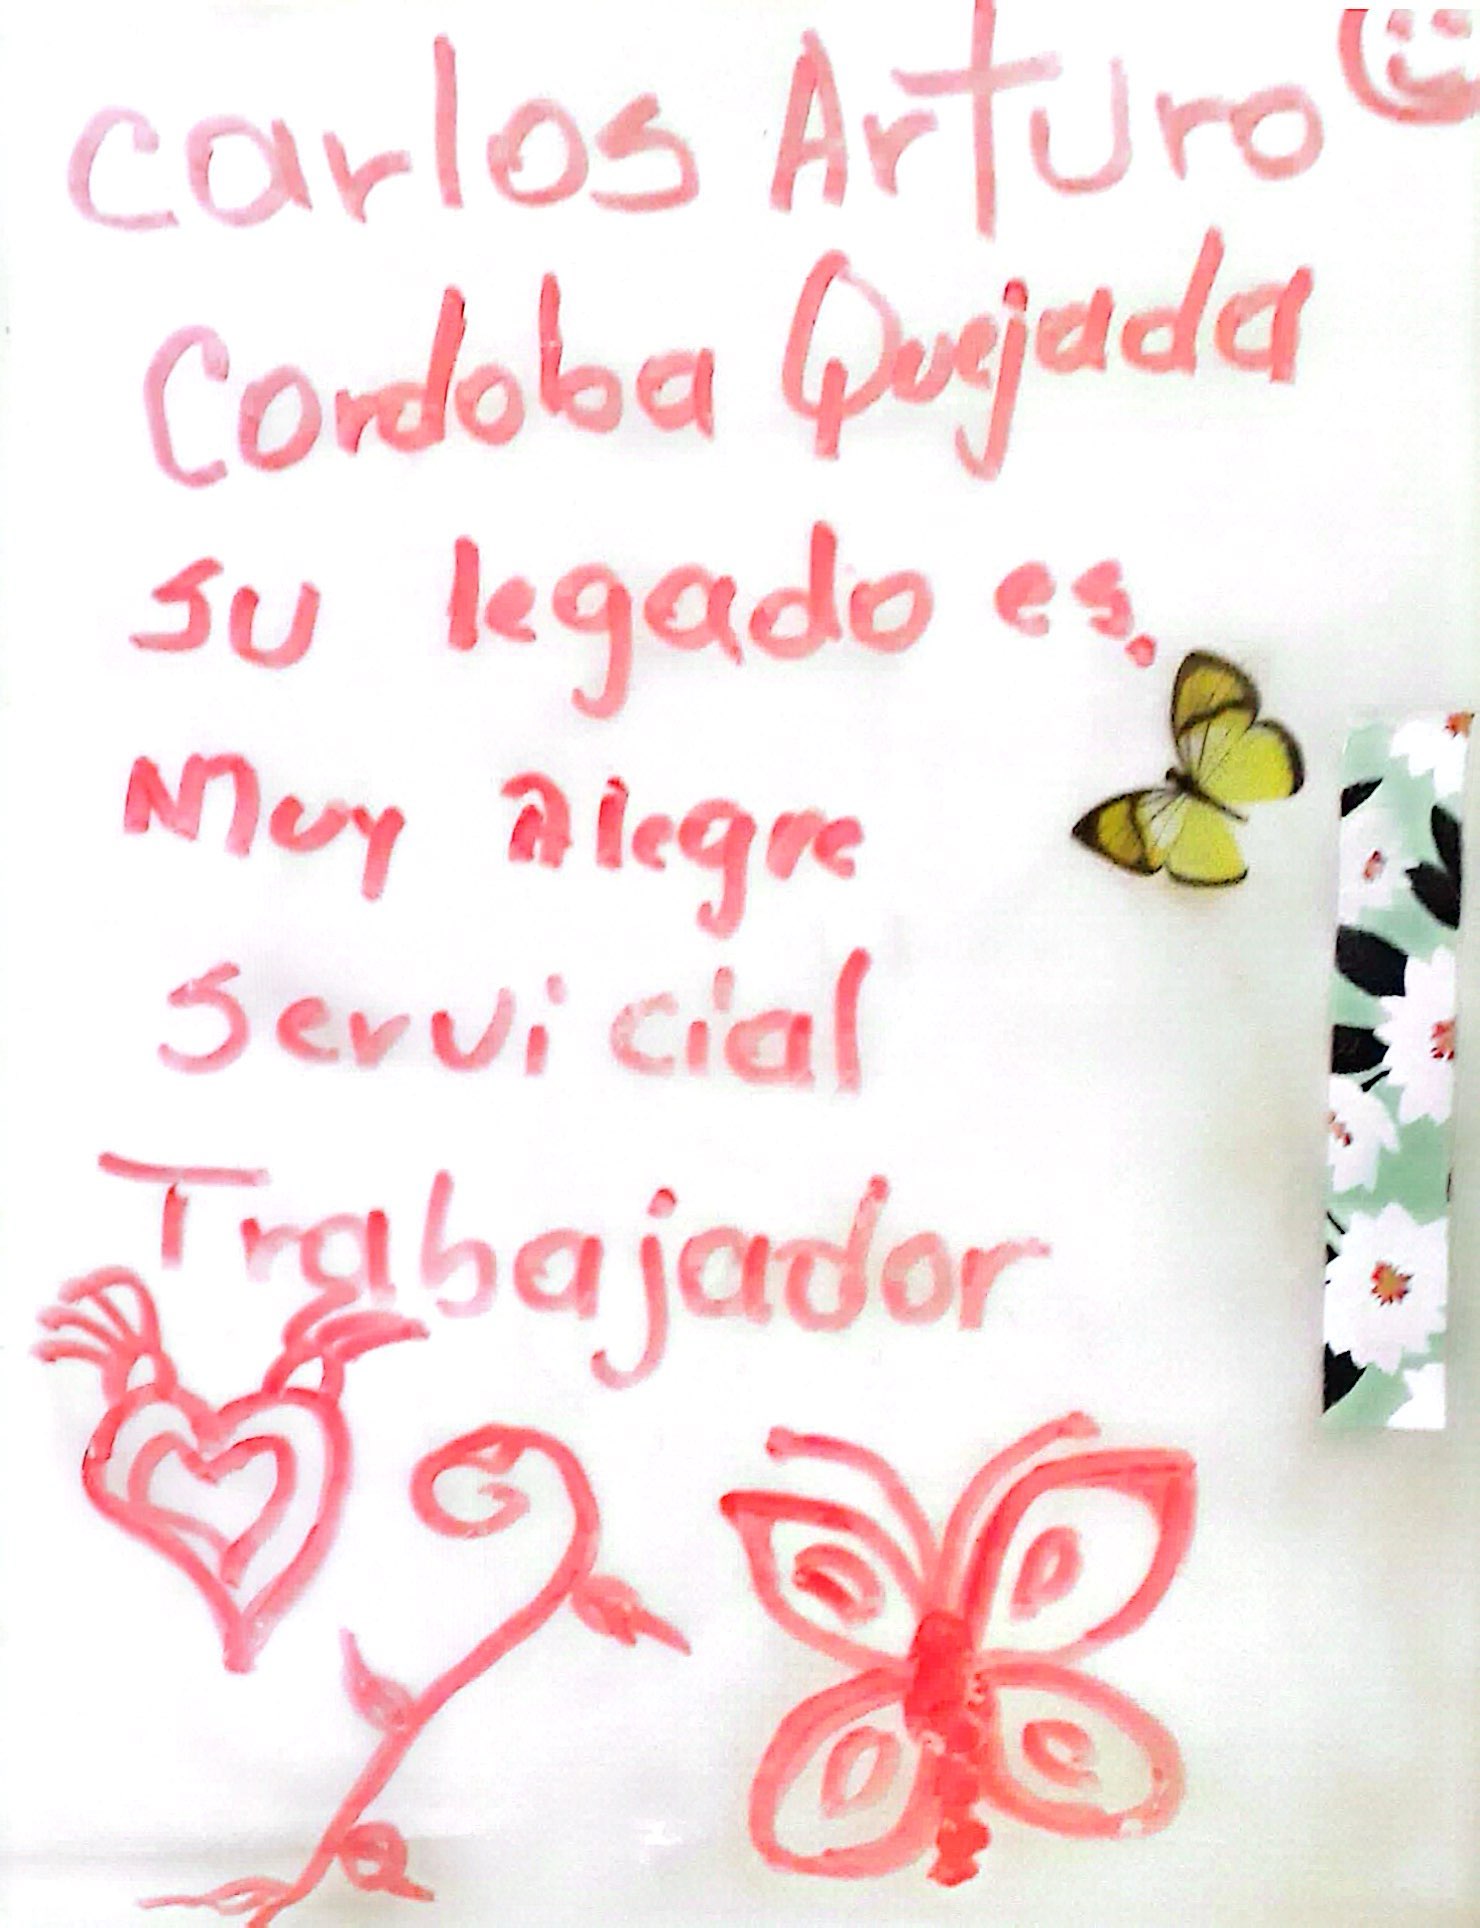 Carlos Arturo
Cordoba Quejada
su legado es.
Muy Alegre
Servicial
Trabajador